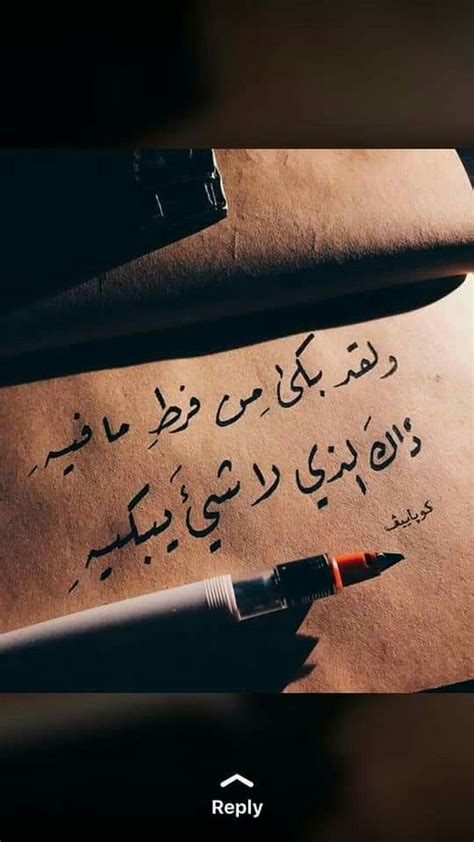 ولقد بكىٰ مِن فرطِ ما فيهِ
ذاكَ الذي لا شيءَ يبكيهِ
كوباييف
Reply